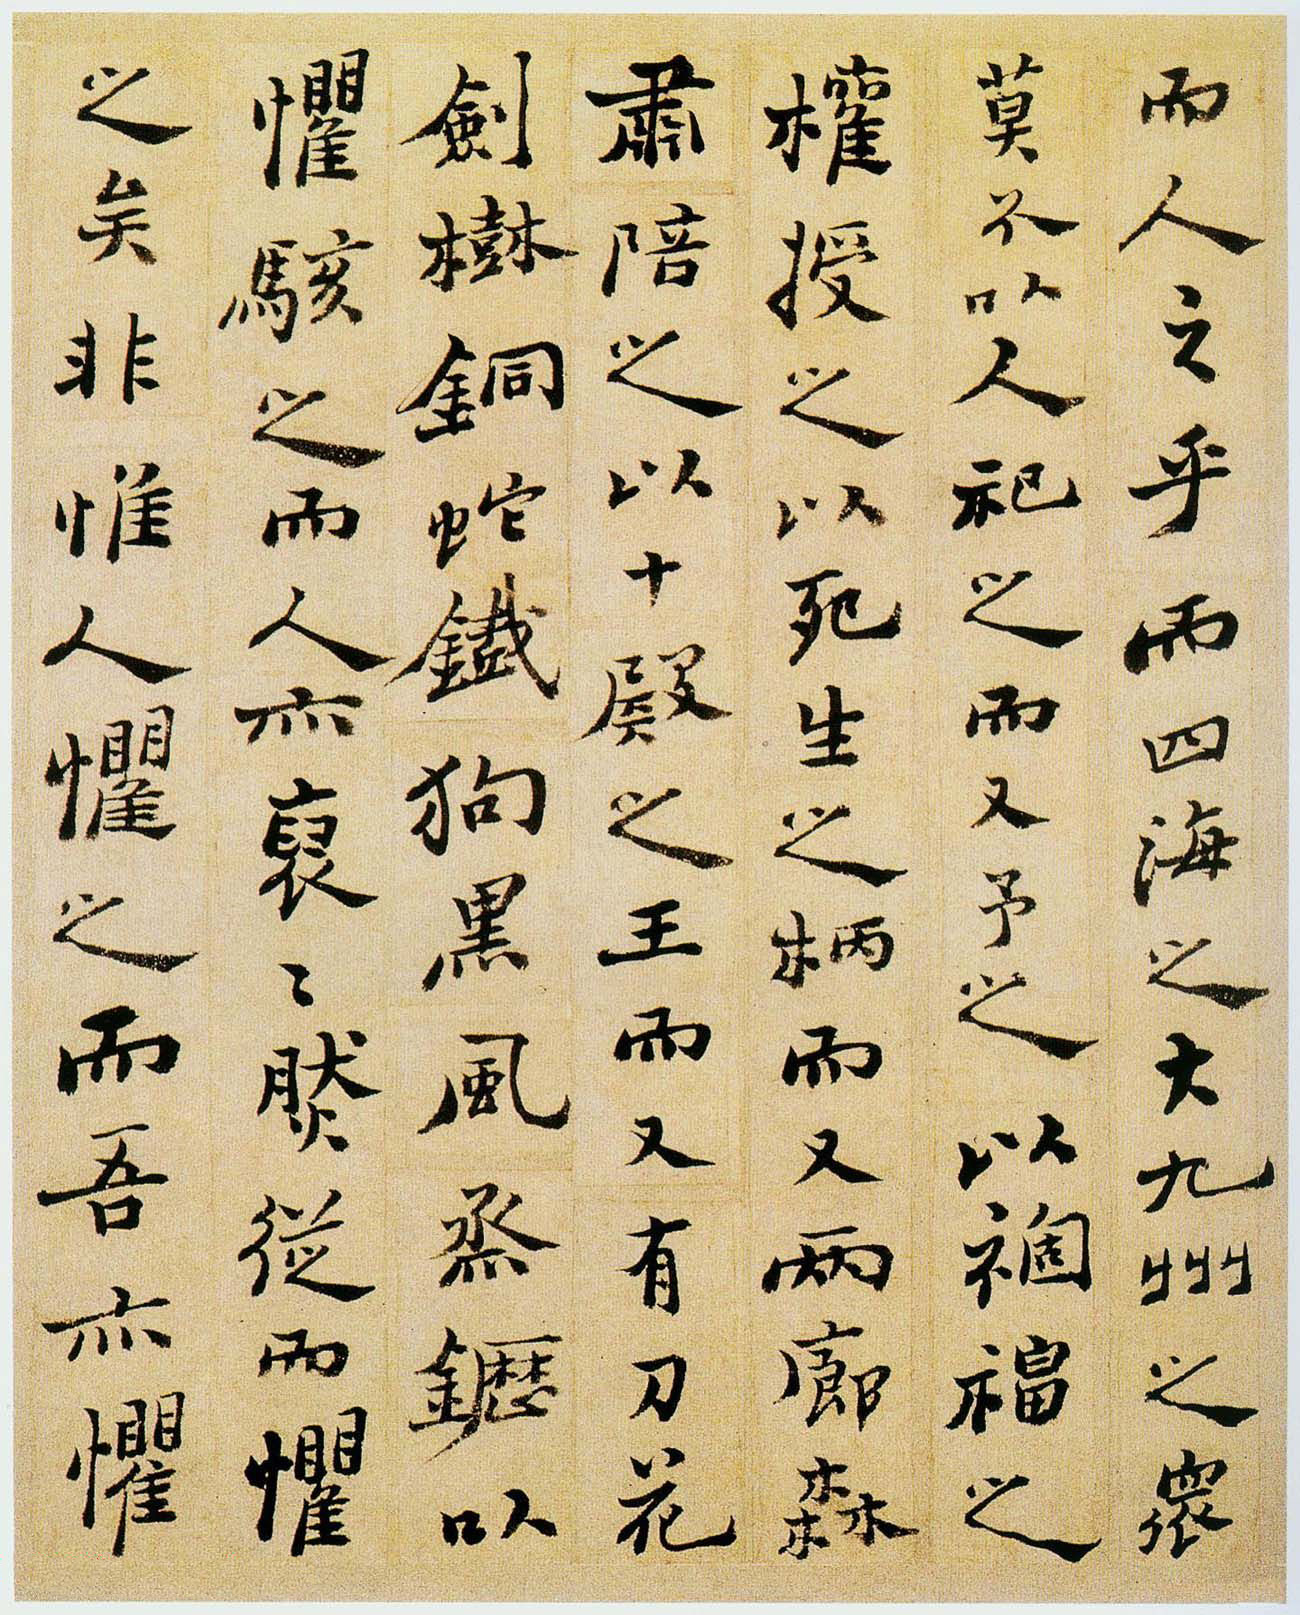 而人之乎而四海之大九州之眾
莫不以人祀之而又予之以禍福之
權授之以死生之柄而又兩廊森
肅陪之以十殿之王而又有刀花
劍樹銅蛇鐵狗黑風蒸鑩以
懼駭之而人亦裒〻然從而懼
之矣非惟人懼之而吾亦懼